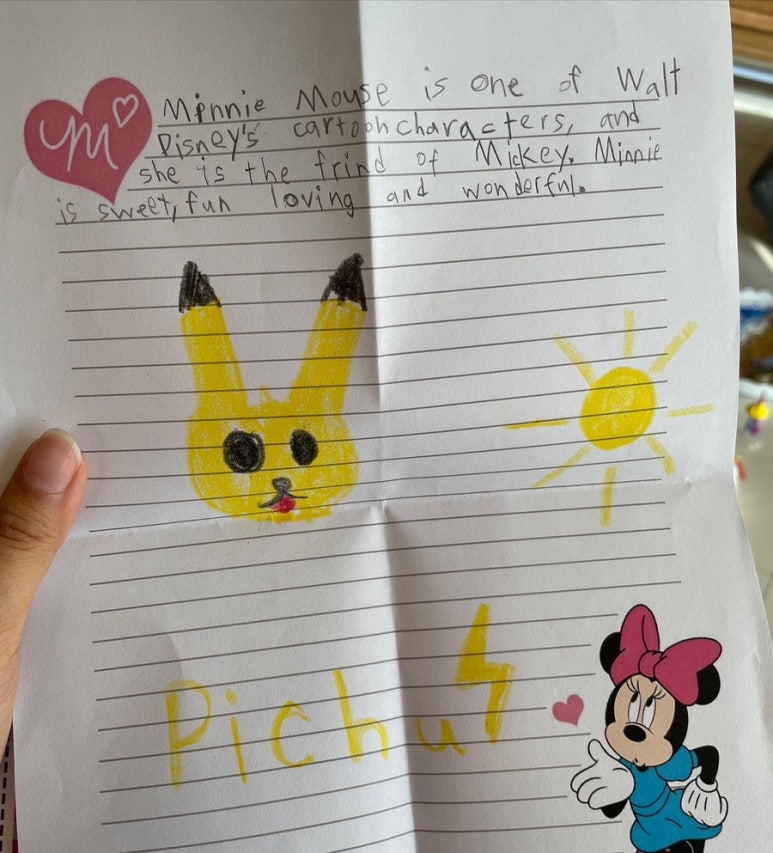 m
Minnie Mouse is one of Walt
Disney's cartoon characters, and
she is the frind of Mickey. Minnie
is sweet, fun loving and wonderful.
Pichu